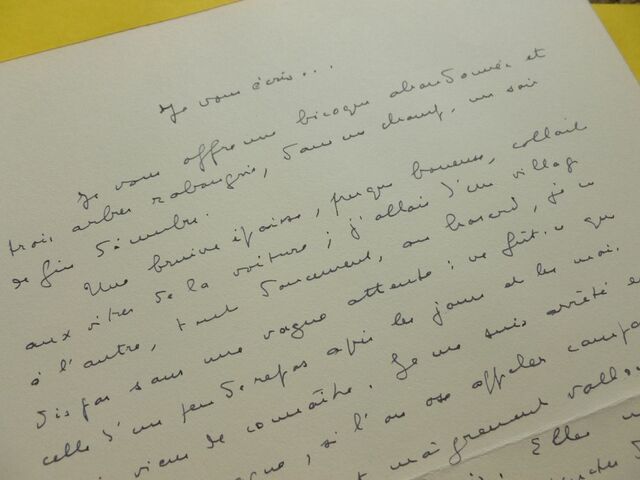 Je vous écris...
Je vous offre une bicoque abandonnée et
trois arbres rabougris, dans un champ, un soir
de fin décembre.
Une bruine épaisse, presque boueuse, collait
aux vitres de la voiture ; j'allais d'un villag
à l'autre, tout doucement, au hasard, je ne
dis pas sans une vague attente : ne fût-ce que
celle d'un peu de repos après les jours et les mois
viens de connaître. Je me suis arrêté e
si l'on ose appeler campa
maigrement vallo
Elles